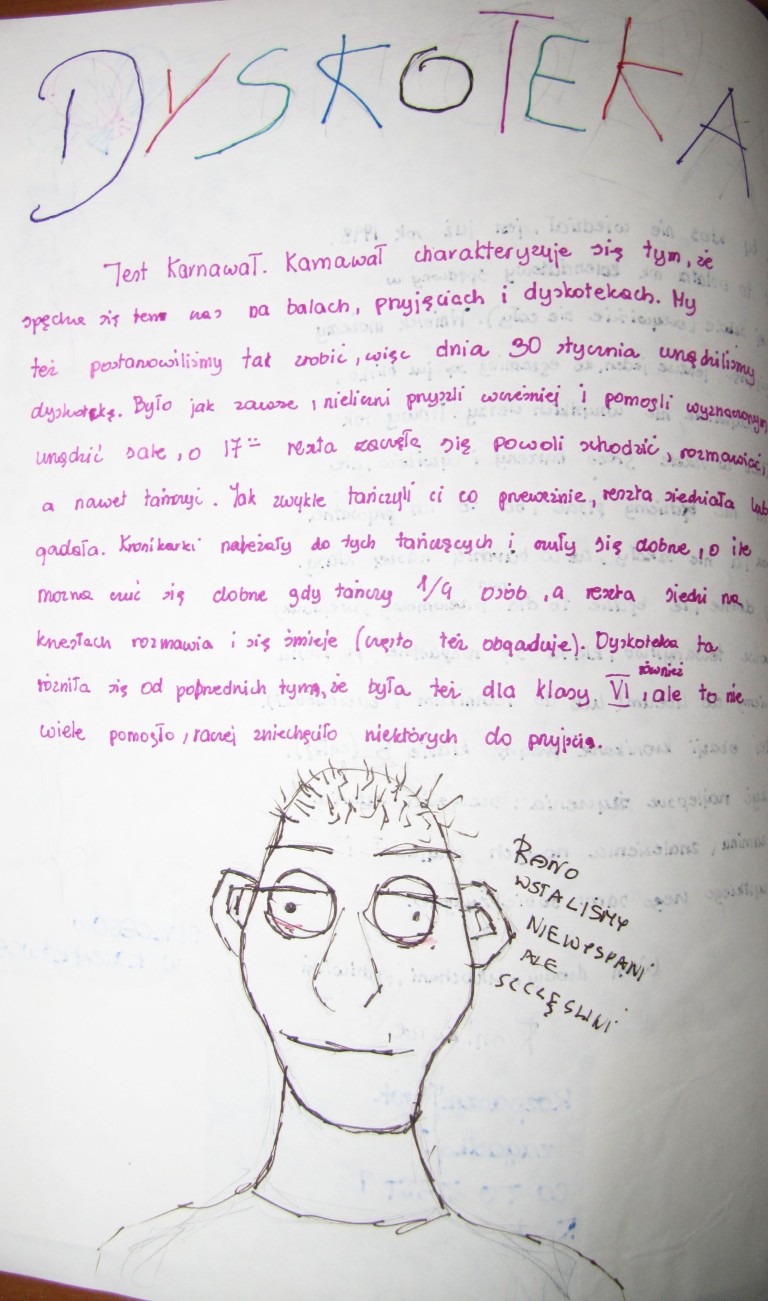 DYSKOTEKA
Jest Karnawał. Karnawał charakteryzuje się tym, że
spędza się ten czas na balach, przyjęciach i dyskotekach. My
też postanowiliśmy tak zrobić, więc dnia 30 stycznia urządziliśmy
dyskotekę. Było jak zawsze, nieliczni przyszli wcześniej i pomogli wyznaczonym
urządzić sale, o 17 reszta zaczęła się powoli schodzić, rozmawiać,
a nawet tańczyć. Jak zwykle tańczyli ci co przeważnie, reszta siedziała lub
gadała. Kronikarki należały do tych tańczących i czuły się dobrze, o ile
można czuć się dobrze gdy tańczy 1/4 osób, a reszta siedzi na
krzesłach rozmawia i się śmieje (często też obgaduje). Dyskoteka ta
różniła się od poprzednich tym, że była też dla klasy VI również, ale to nie
wiele pomogło, raczej zniechęciło niektórych do przyjścia.
RANO
WSTALIŚMY
NIEWYSPANI
ALE
SZCZĘŚLIWI